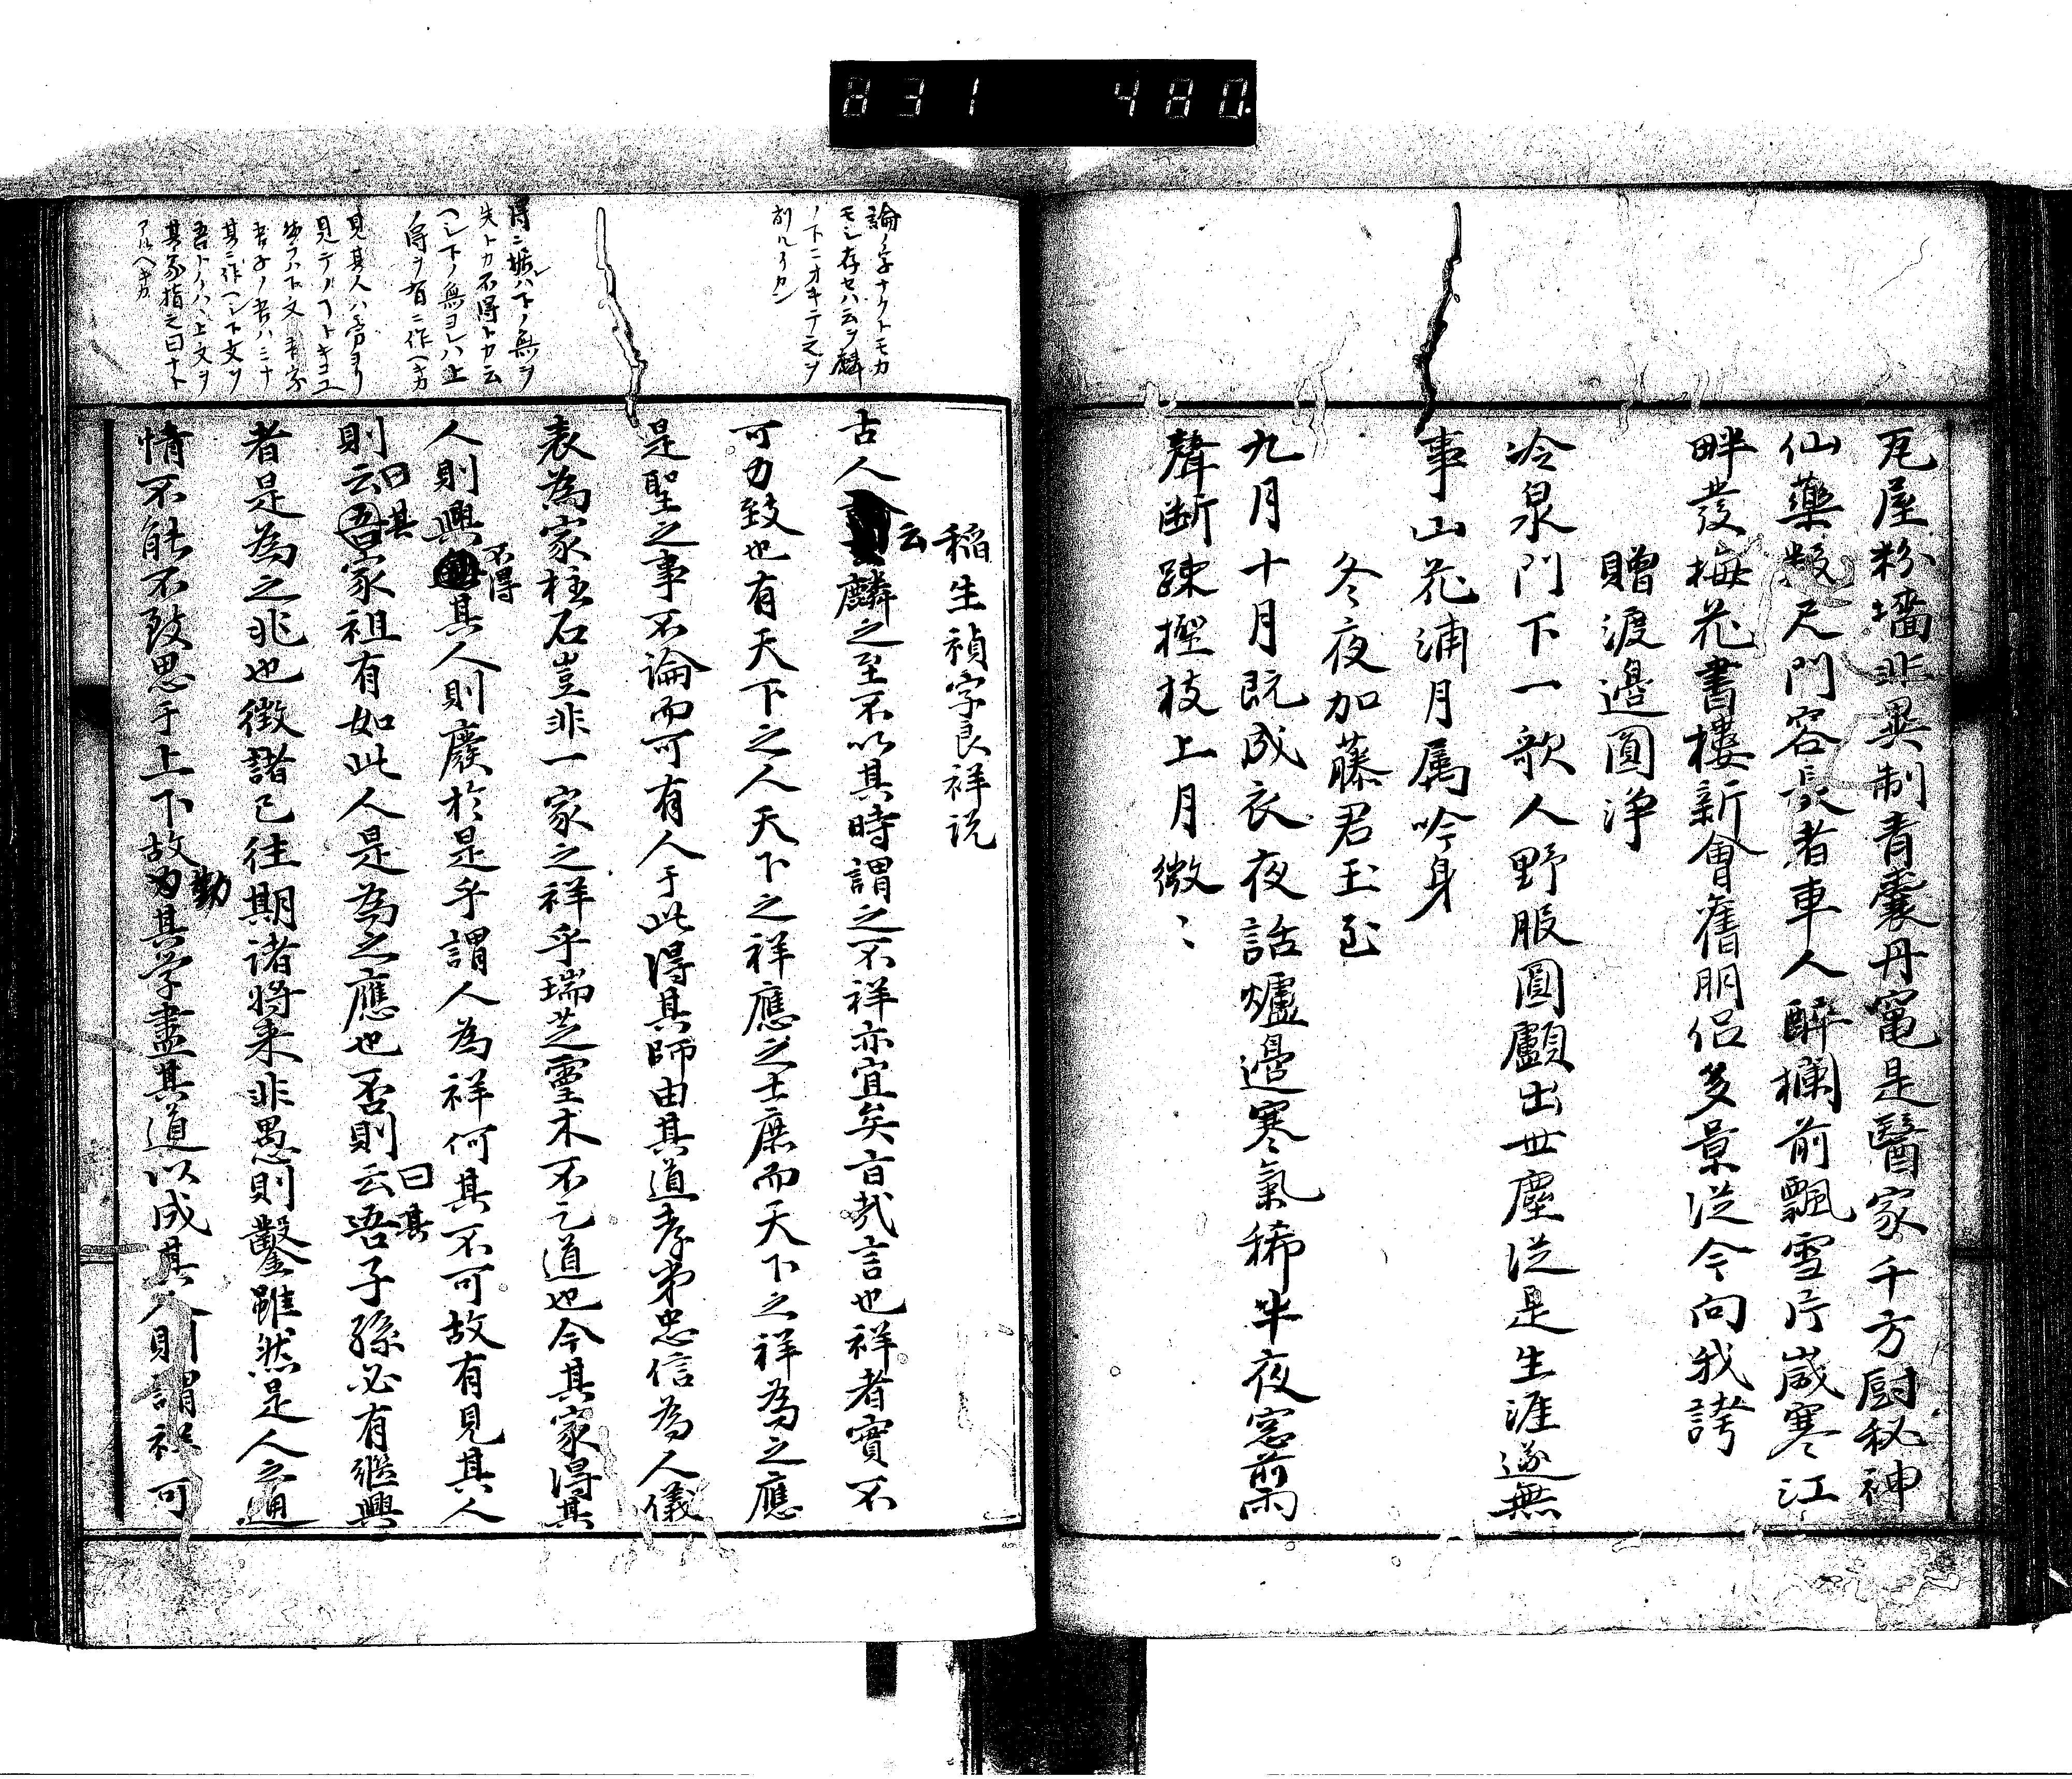 831 480.
瓦屋粉墻非異制青囊丹竃是醫家千方厨秘神
仙藥数尺門容長者車人醉欄前飄雪片歲寒江
畔發梅花書樓新會舊朋侶多景従今向我誇
贈渡邉圓浄
冷泉門下一歌人野服圓顱出世塵従是生涯遂無
事山花浦月属吟身
冬夜加藤君玉至
九月十月既成衣夜話爐邉寒氣稀半夜窓前雨
聲断疎檉枝上月微〻
論ノ字ナクトモカ
モシ存セハ云ヲ麟
ノ下ニオキテ之ヲ
削ルイカン
稲生禎字良祥说
古人云麟之至不以其時謂之不祥亦宜矣㫖哉言也祥者實不
可力致也有天下之人天下之祥應之士庶而天下之祥為之應
是聖之事不論而可有人于此得其師由其道孝弟忠信為人儀
表為家柱石豈非一家之祥乎瑞芝靈木不乞道也今其家得其
人則興不得其人則廢於是乎謂人為祥何其不可故有見其人
則云曰其吾家祖有如此人是為之應也否則云曰其吾子孫必有繼興
者是為之兆也徵諸已往期諸将来非愚則鑿雖然是人之通
情不能不致思于上下故勤為其学盡其道以成其人則謂祥可
得ニ據ハ下ノ無ヲ
失トカ不得トカ云
ヘシ下ノ無ヨレハ上
ノ得ヲ有ニ作ヘキカ
見其人ハ旁ヨリ
見テノコトキコユ
其ニ作ヘシ下文ヲ
吾トノハ上文ヲ
其家指之曰ナト
アルヘキカ